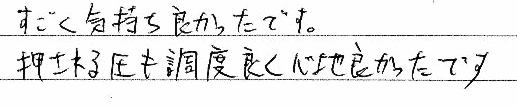 すごく気持ち良かったです。
押される圧も調度良く心地良かったです